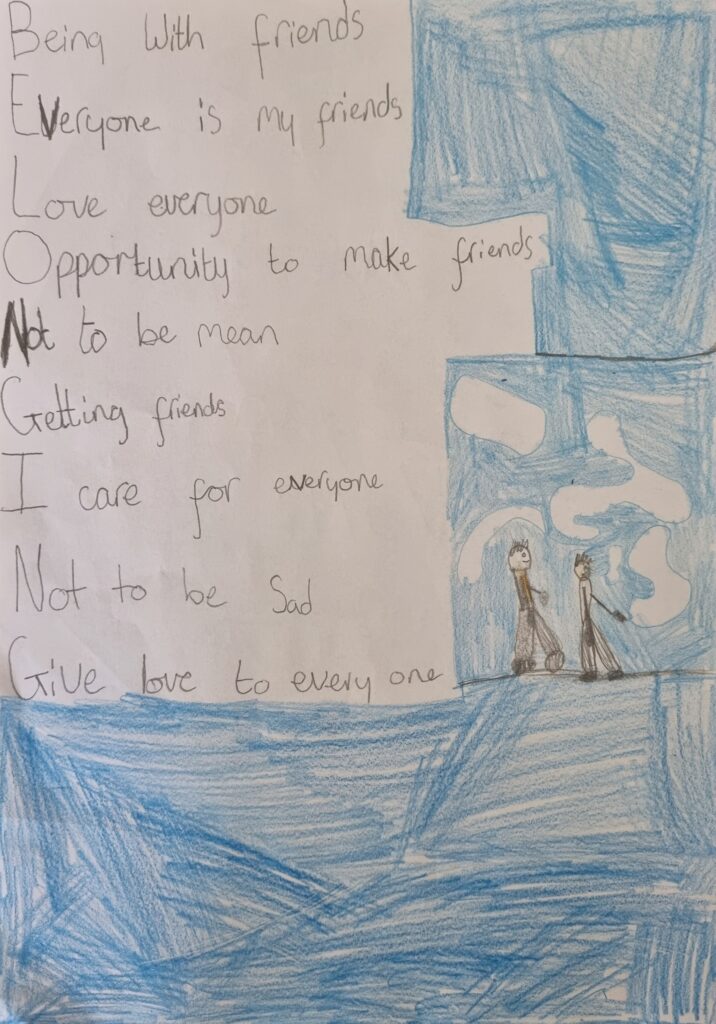 Being with friends
Everyone is my friends
Love everyone
Opportunity to make friends
Not to be mean
Getting friends
I care for everyone
Not to be Sad
Give love to every one